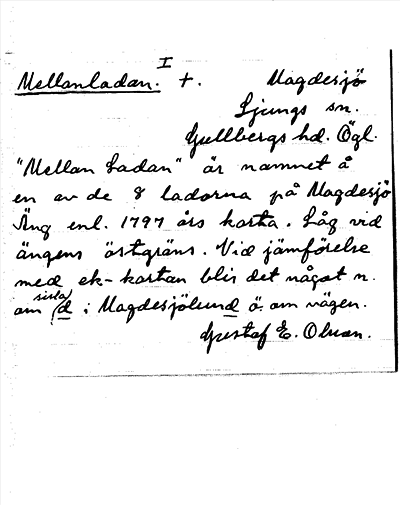 I
Mellanladan. +. Magdesjö
Ljungs sn.
Gullbergs hd. Ögl.
"Mellan Ladan" är namnet å
en av de 8 ladorna på Magdesjö
Äng enl. 1797 års karta. Låg vid
ängens östgräns. Vid jämförelse
med ek-kartan blir det något n.
om sista d i Magdesjölund ö. om vägen.
Gustaf E. Olsson.